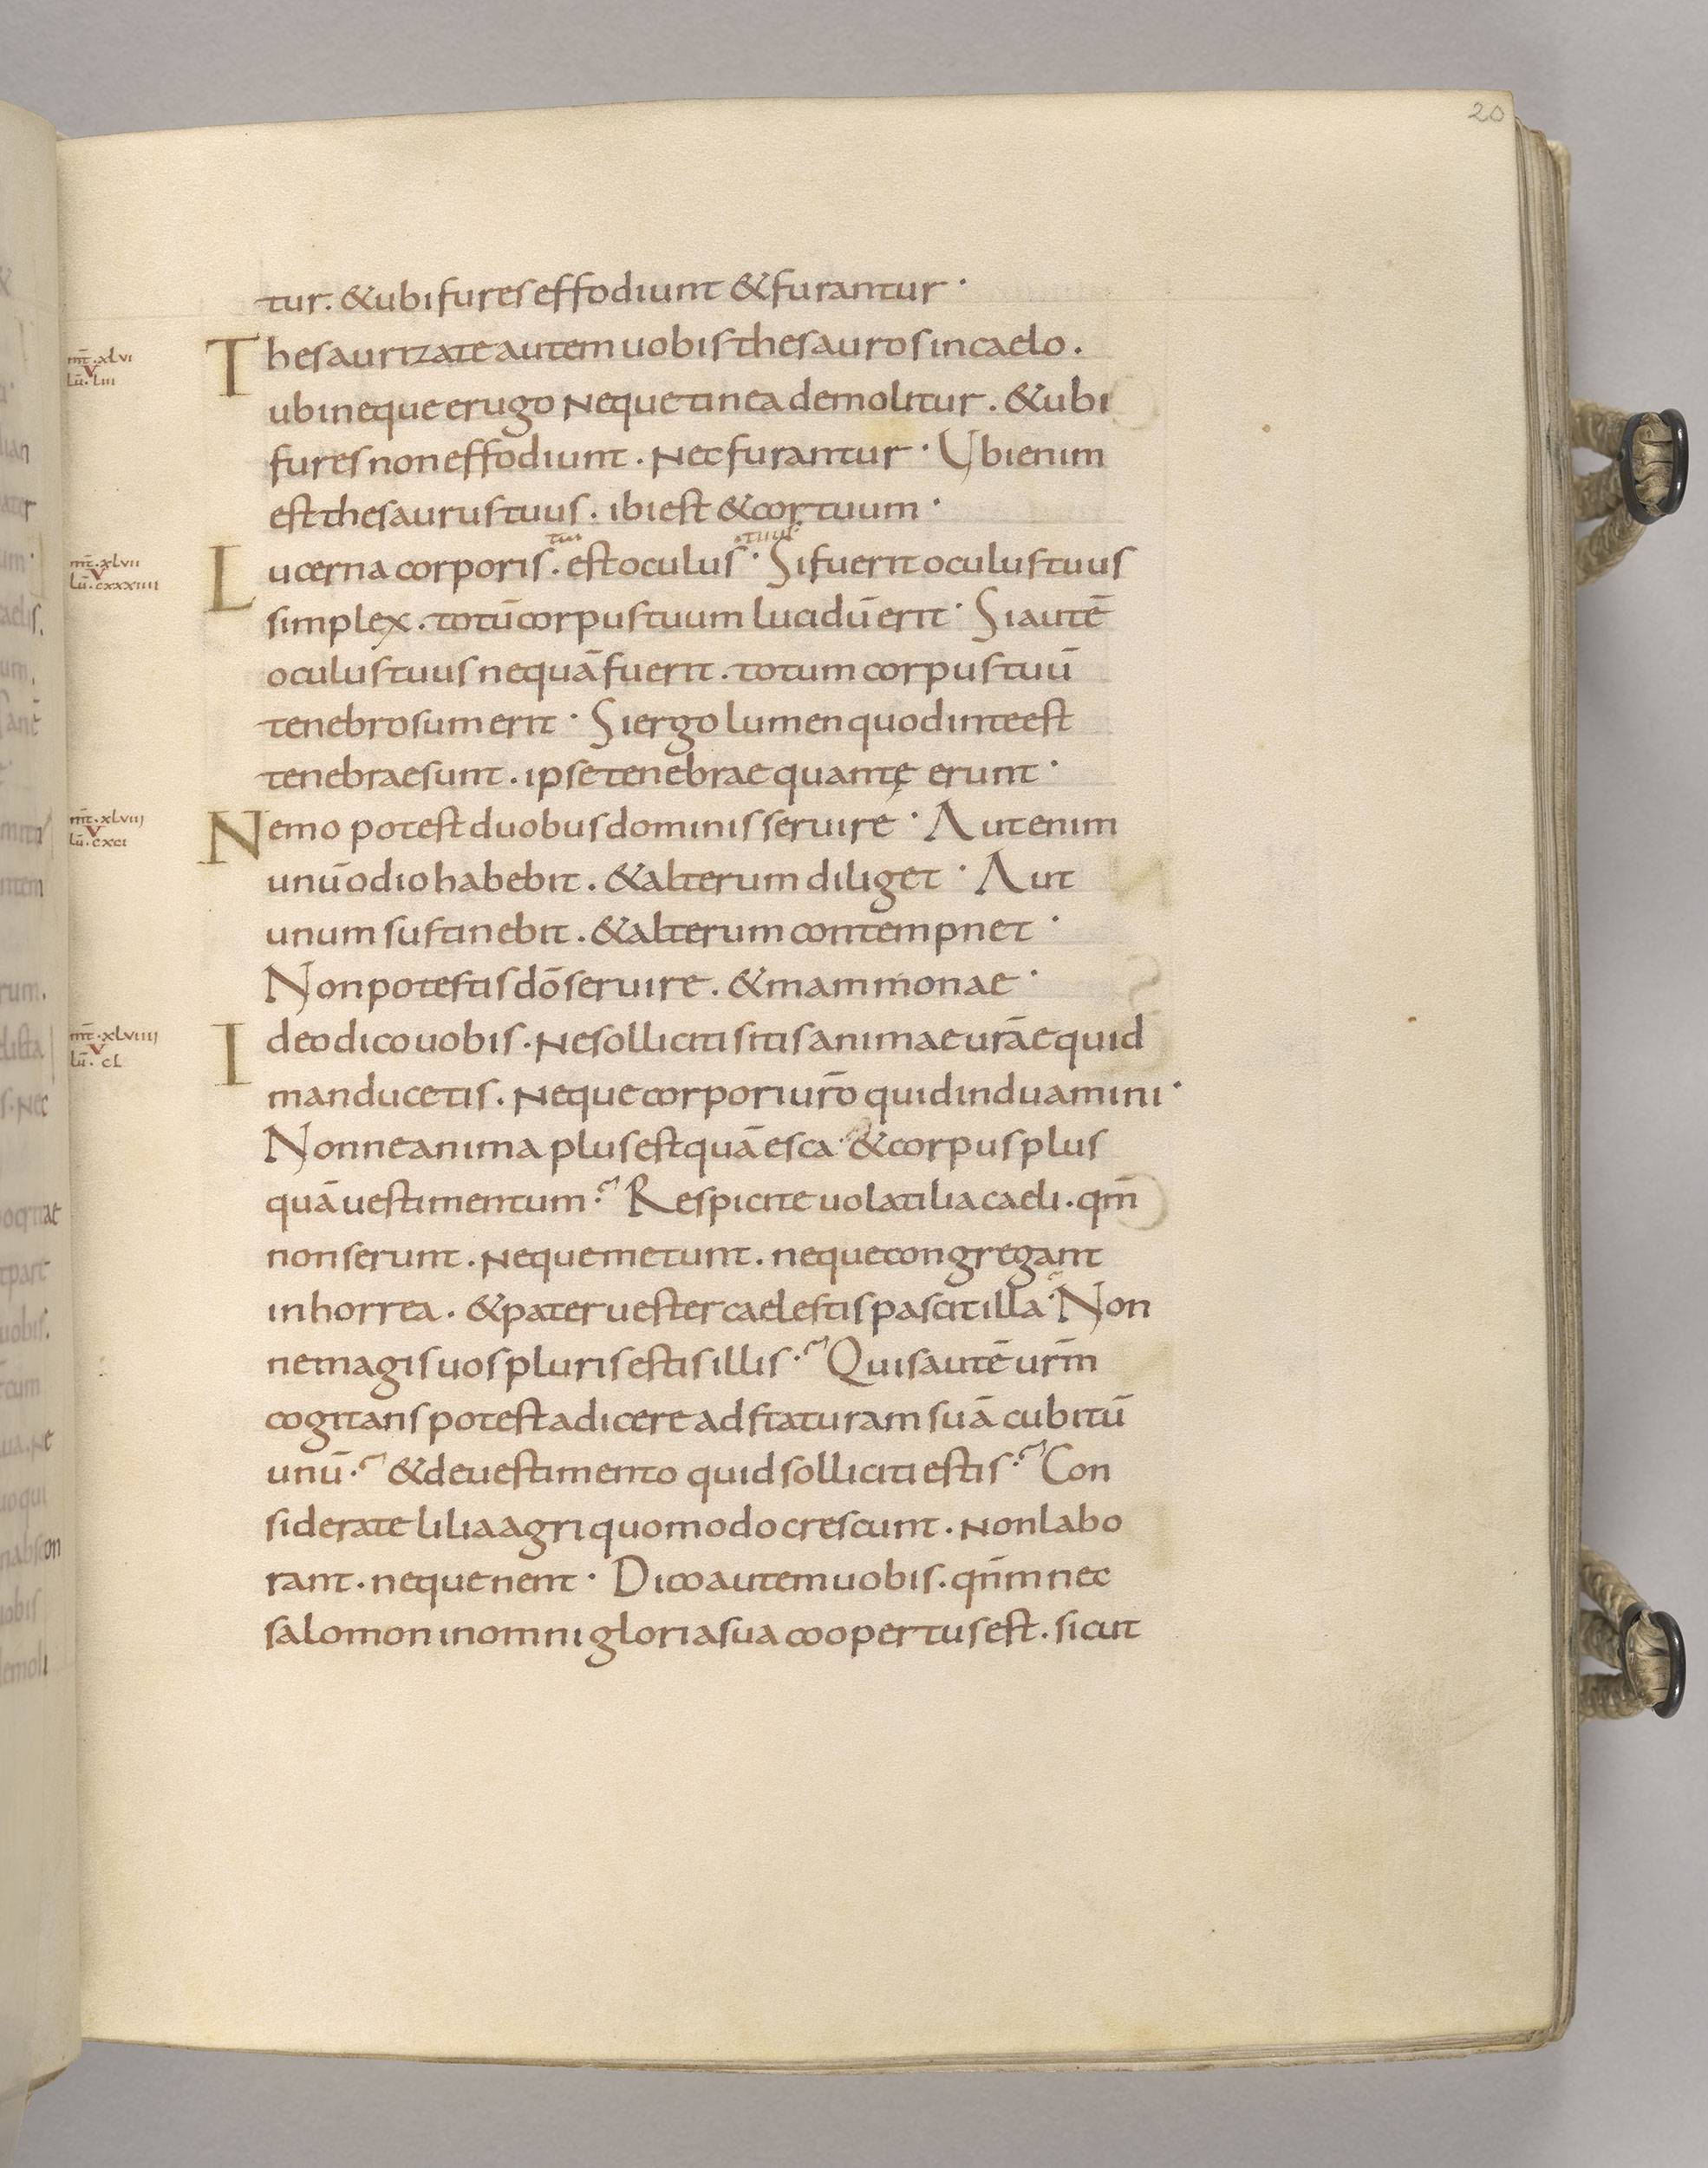 20
tur. & ubi fures effodiunt & furantur ·
mt̄ · xlvi
V
Lū · Liii
Thesaurizate autem uobis thesauros in caelo .
ubi neque erugo neque tinea demolitur . & ubi
fures non effodiunt . nec furantur · Ubi enim
est thesaurus tuus . ibi est & cor tuum ·
tui tuus
mt̄ · xlvii
V
Lū · cxxxiiii
Lucerna corporis . est oculus · Si fuerit oculus tuus
simplex . totū corpus tuum lucidū erit · Si autē
oculus tuus nequā fuerit . totum corpus tuū
tenebrosum erit · Si ergo lumen quod in te est
tenebrae sunt . ipse tenebrae quantę erunt ·
mt̄ · xlviii
V
Lū · cxci
Nemo potest duobus dominis seruire · Aut enim
unū odio habebit . & alterum diliget · Aut
unum sustinebit . & alterum contempnet ·
Non potestis dō seruire . & mammonae ·
mt̄ · xlviiii
V
Lū · cL
Ideo dico uobis · ne solliciti sitis animae urāe quid
manducetis . neque corpori urō quid induamini ·
Nonne anima plus est quā esca · & corpus plus
quā uestimentum ? Respicite uolatilia caeli . qm̄
non serunt . neque metunt . neque congregant
in horrea . & pater uester caelestis pascit illa · Non
ne magis uos pluris estis illis ? Quis autē urm̄
cogitans potest adicere ad staturam suā cubitū
unū ? & de uestimento quid solliciti estis ? Con
siderate lilia agri quomodo crescunt . non labo
rant . neque nent · Dico autem uobis . qnm̄ nec
salomon in omni gloria sua coopertus est . sicut